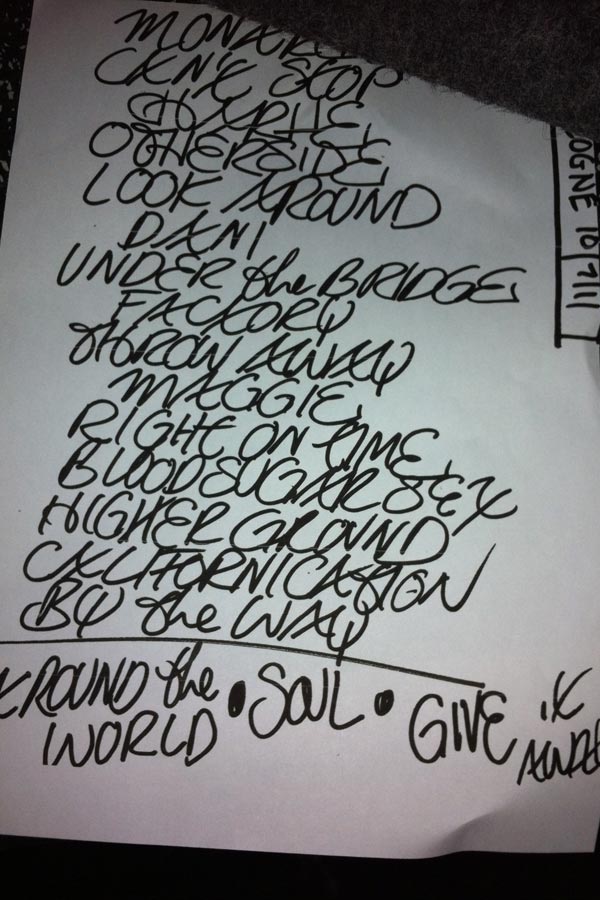 MONAR
CAN'T STOP
CHARLIE
OTHERSIDE
LOOK AROUND
DANI
UNDER the BRIDGE
FACTORY
THROW AWAY
MAGGIE
RIGHT ON TIME
BLOOD SUGAR SEX
HIGHER GROUND
CALIFORNICATION
BY the WAY
AROUND the WORLD • SOUL • GIVE it AWA
OGNE 10/7/11